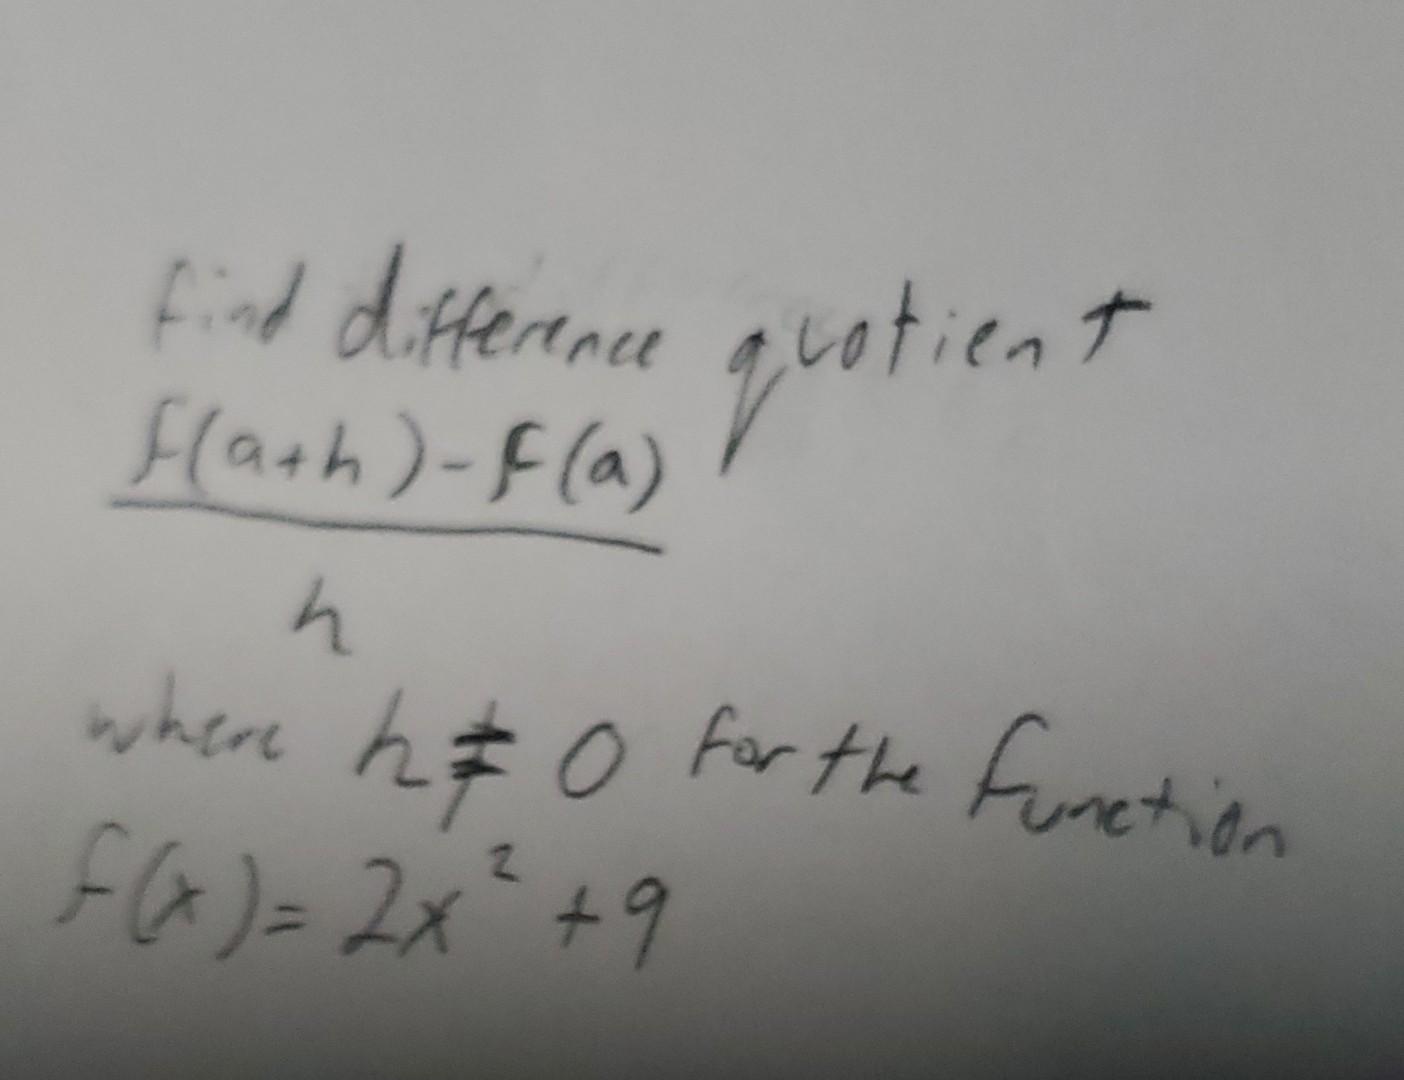 find difference quotient
f(a+h)-f(a)
h
where h≠0 for the function
f(x)=2x²+9